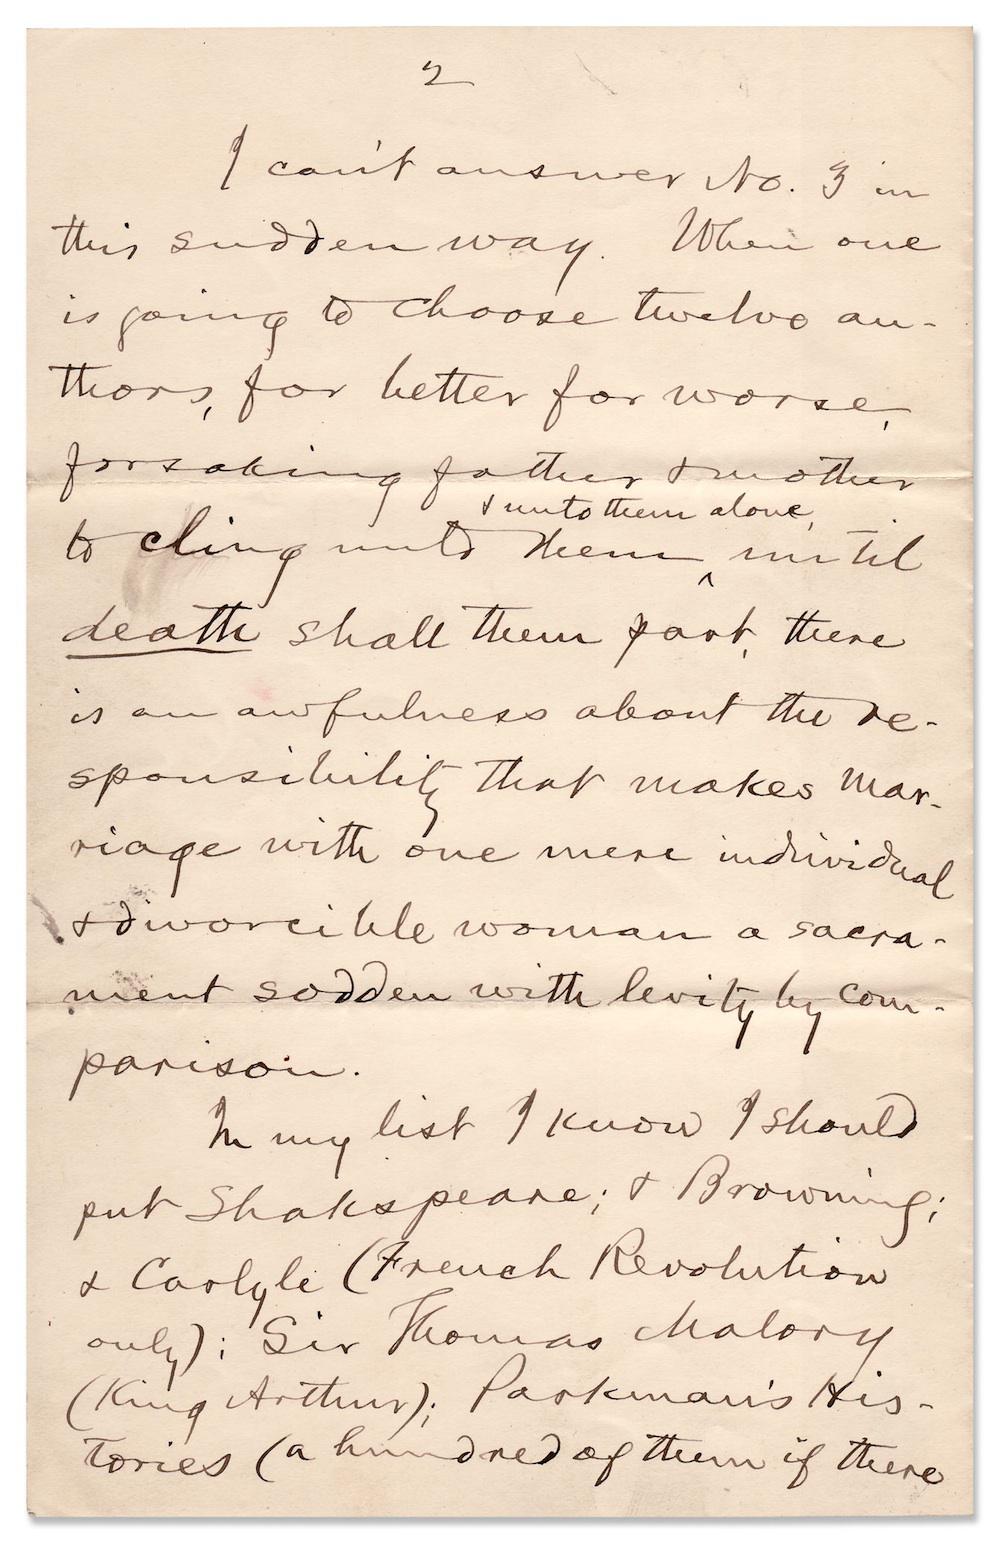 2
I can't answer No. 3 in
this sudden way. When one
is going to choose twelve au-
thors, for better for worse,
forsaking father & mother
& unto them alone,
to cling unto them ^ until
death shall them part, there
is an awfulness about the re-
sponsibility that makes mar-
riage with one mere individual
& divorcible woman a sacra-
ment sodden with levity by com-
parison.
In my list I know I should
put Shakspeare; & Browning;
& Carlyle (French Revolution
only); Sir Thomas Malory
(King Arthur); Parkman's His-
tories (a hundred of them if there